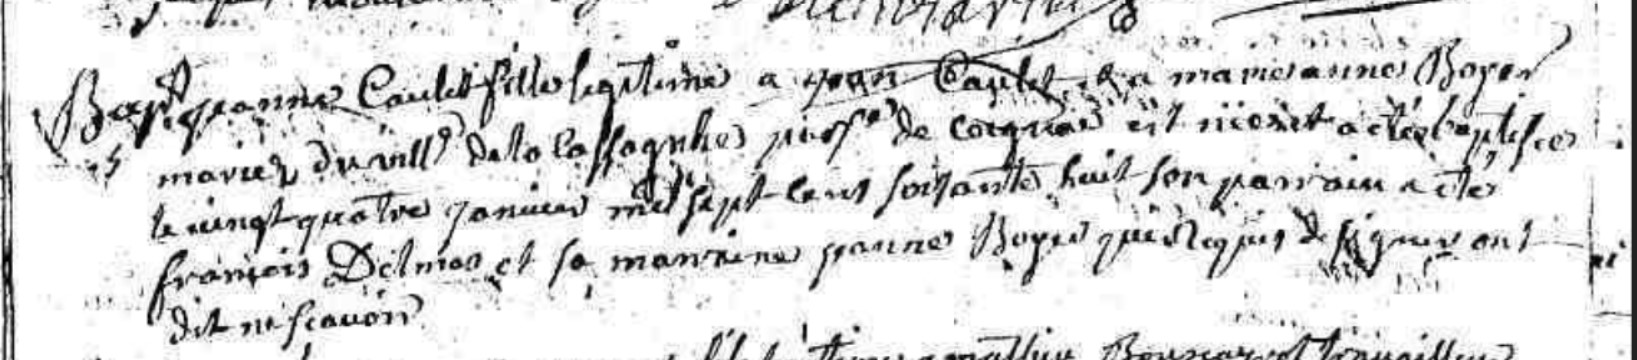 Bapt jeanne Caulet fille legitime a jean Caulet & a marie anne Boyer
mariez du vill^e de la Cassagnhe parss^e de est nee et a eté baptisee
le vingt quatre janvier mil sept cent soixante huit son parrain a eté
françois Delmas et sa marraine jeanne Boyer qui requis de signer ont
dit ne scavoir